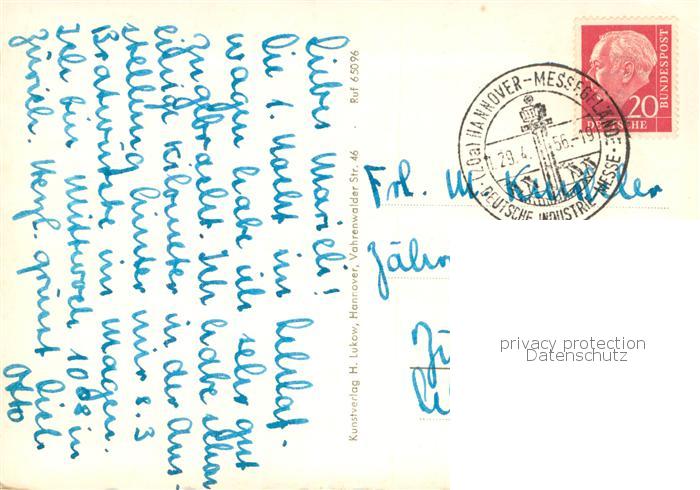 Liebes Marieli!
Die 1. Nacht im Schlaf-
wagen habe ich sehr gut
zugebracht. Ich habe schon
einige Kilometer in der Aus-
stellung hinter mir u. 3
Bratwürste im Magen.
Ich bin Mittwoch 10 08 in
Zürich. Herzl. grüsst Dich
Otto
Kunstverlag H. Lukow, Hannover, Vahrenwalder Str. 46 Ruf 65096
20
DEUTSCHE
BUNDESPOST
HANNOVER-MESSEGELÄNDE
29.4.56.-19
DEUTSCHE INDUSTRIE-MESSE
Frl. M.
privacy protection
Datenschutz